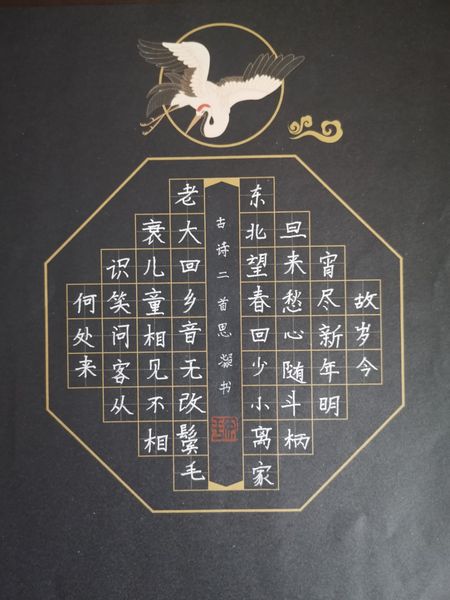 故岁今
宵尽新年明
旦来愁心随斗柄
东北望春回少小离家
古诗二首思凝书
老大回乡音无改鬓毛
衰儿童相见不相
识笑问客从
何处来